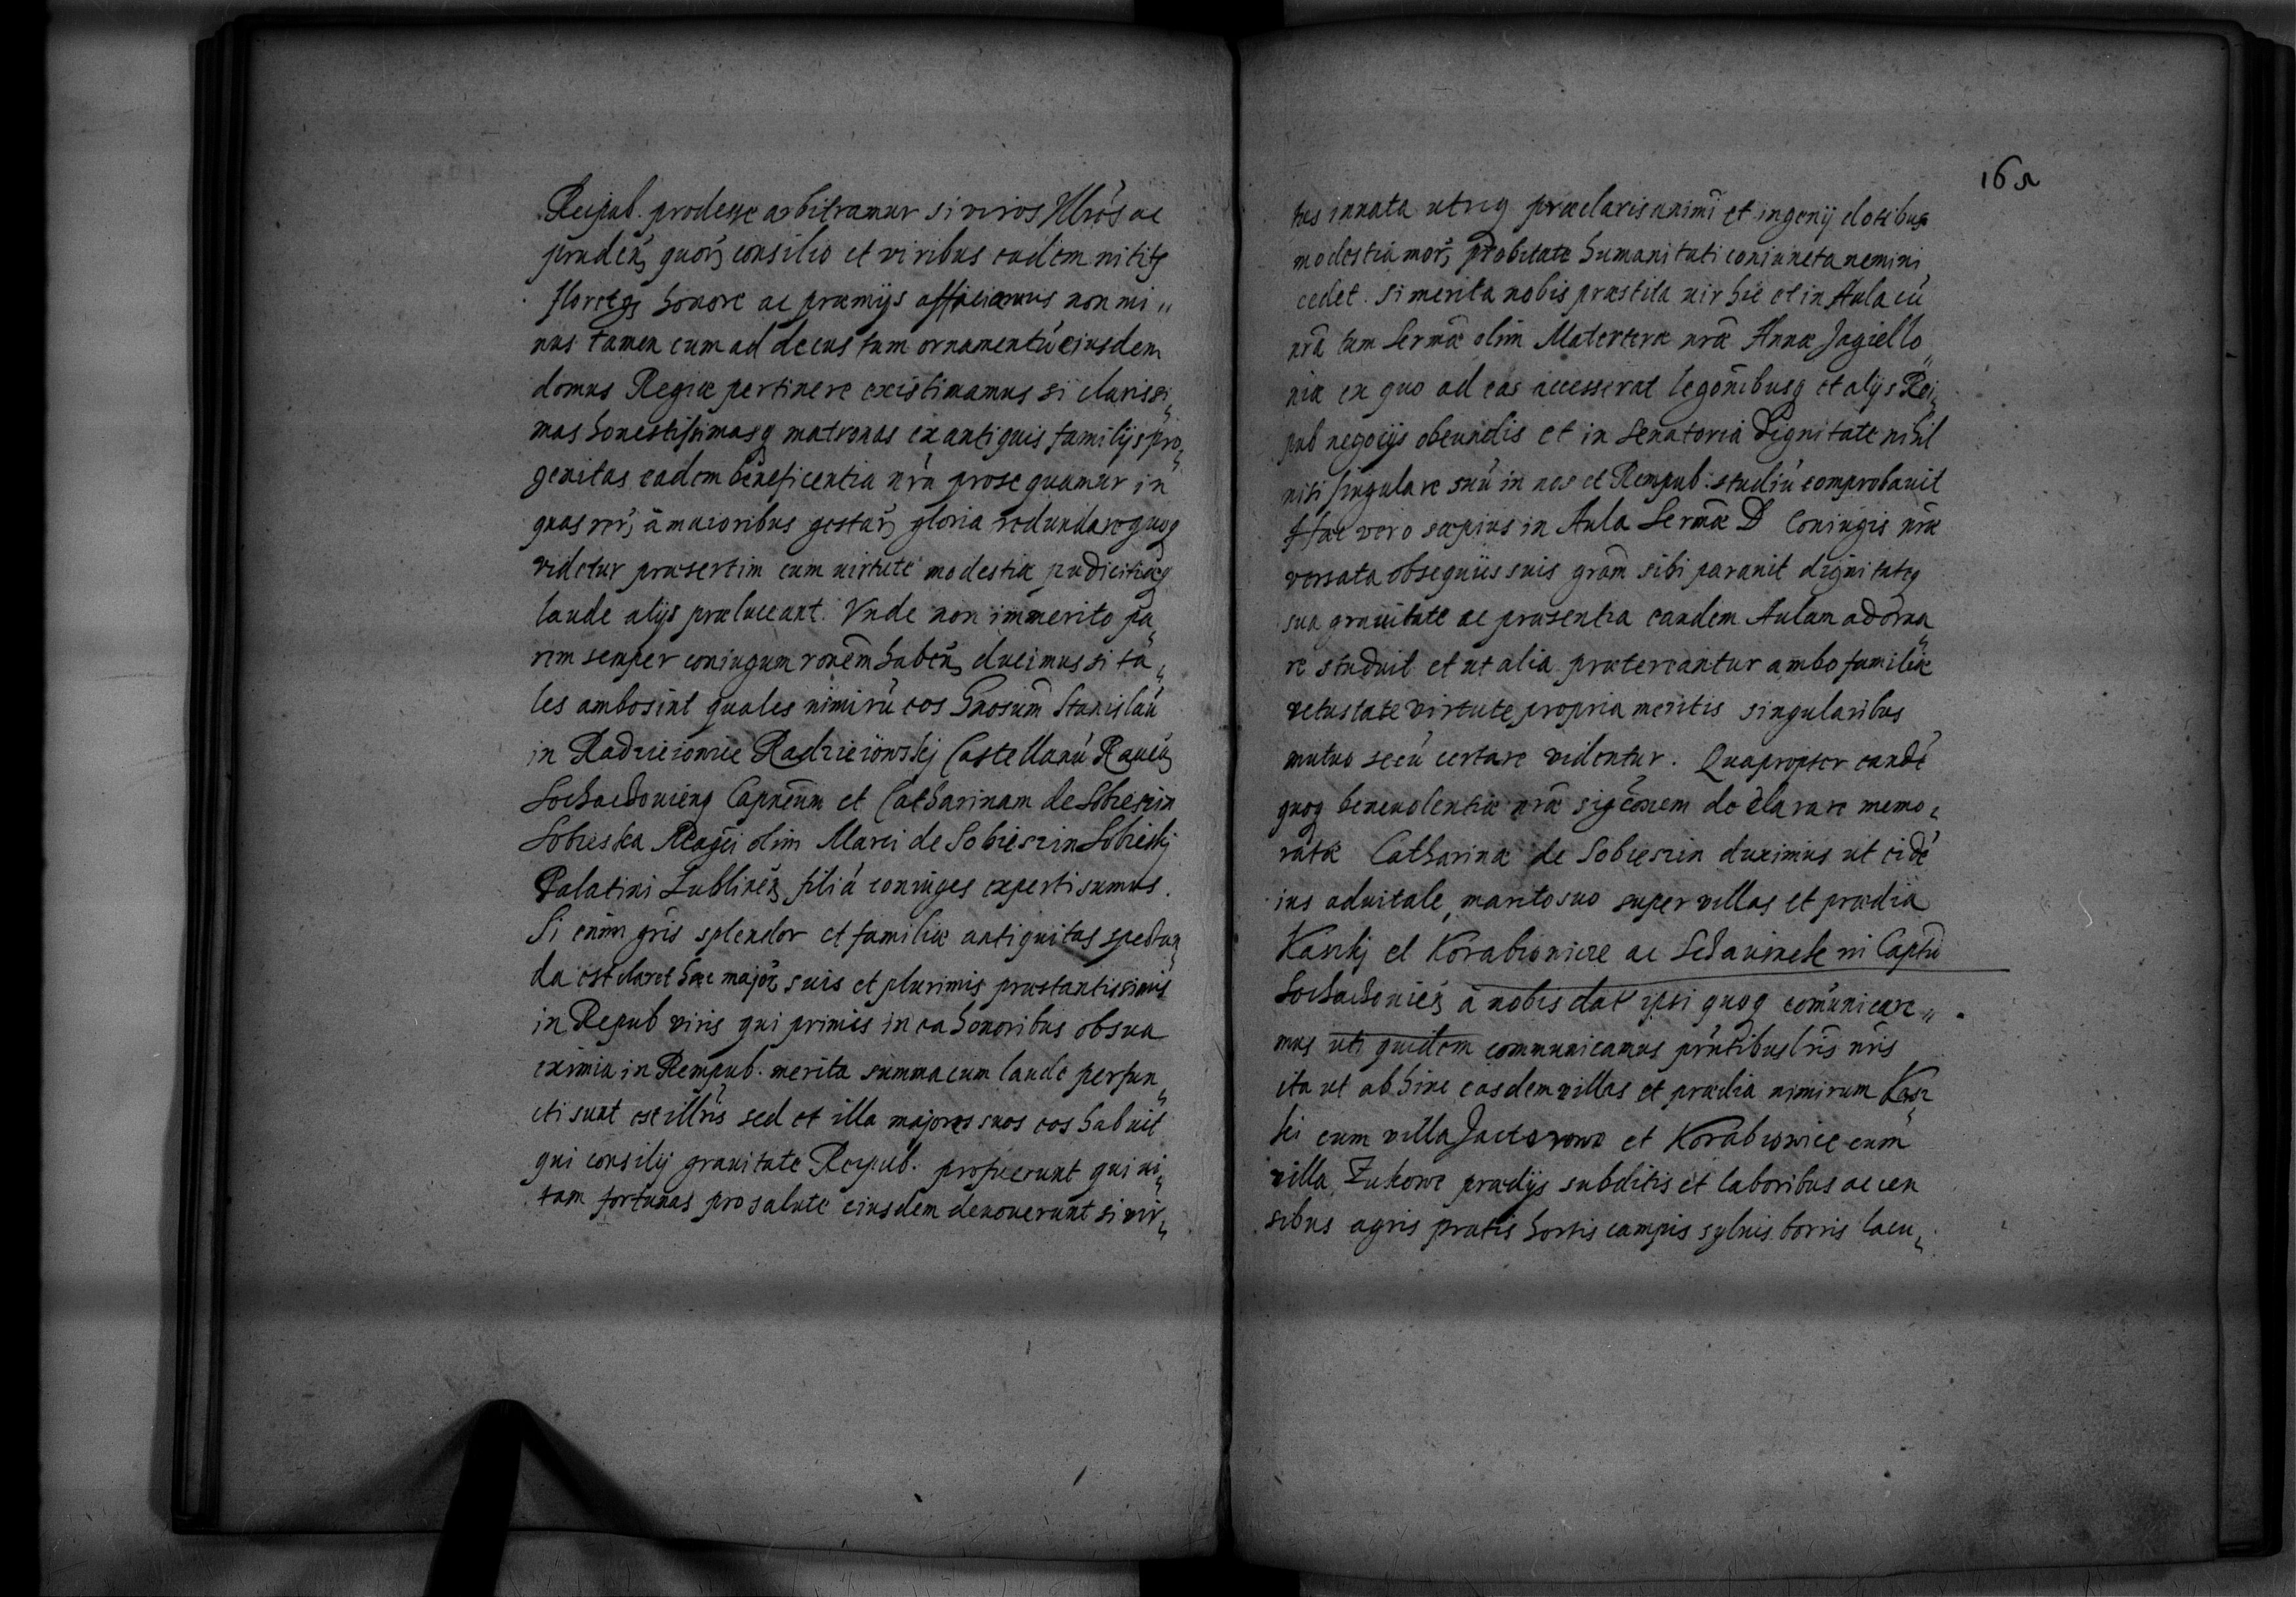 Reipub. prodesse arbitramur si viros Illrēs ac
prudēn quorʒ consilio et viribus eadem nititʒ
floretqʒ honore ac præmijs afficiamus non mi„
nus tamen cum ad decus tum ornamentū eiusdem
domus Regiæ pertinere existimamus si clarissi„
mas honestissimasqʒ matronas ex antiquis familijs pro„
genitas eadem beneficentia nrā prosequamur in
quas rerʒ à maioribus gestarʒ gloria redundare quoqʒ
videtur præsertim cum virtute modestiæ pudicitiæqʒ
laude alijs præluceant. Vnde non immerito pa„
rem semper coniugum ronēm habēn ducimus si ta„
les ambo sint quales nimirū eos Gnosum Stanislaū
in Radzieiowice Radzieiowskj Castellanū Ravēn
Sochachoviēnq Capnēum et Catharinam de Sobieszin
Sobieska Magci olim Marci de Sobieszin Sobieskj
Palatini Lublinēn filiā coniuges experti sumus.
Si enim gnis splendor et familiæ antiquitas spectan„
da est claret hæc majorʒ suis et plurimis præstantissimis
in Repub viris qui primis in ea honoribus ob sua
eximia in Rempub. merita summa cum laude perfun„
cti sunt est illris sed et illa majores suos eos habuit
qui consilij gravitate Reipub. profuerunt qui vi„
tam fortunas pro salute eiusdem devoverunt si vir„
16
tus innata utriqʒ præclaris animi et ingenij dotibus
modestia morʒ probitate humanitati coniuncta nemini
cedet. Si merita nobis præstita vir hic et in Aula cū
nrā tum Sermæ olim Materteræ nræ Annæ Jagiello„
niæ ex quo ad eas accesserat legōnibusqʒ et alijs Rei„
pub negocijs obeundis et in Senatoria Dignitate nihil
nisi singulare suū in nos et Rempub. studiū comprobavit
Hæc vero sæpius in Aula Sermæ D Coniugis nræ
versata obsequiis suis grām sibi paravit dignitateqʒ
sua gravitate ac præsentia eandem Aulam adorna„
re studuit et ut alia prætereantur ambo familiæ
vetustate virtute propria meritis singularibus
mutuo secū certare videntur. Quapropter eandē
quoqʒ benevolentiæ nræ sigēonem declarare memo„
ratæ Catharinæ de Sobieszin duximus ut eidē
ius advitale, marito suo super villas et prædia
Kaszkj et Korabiowicze ac in Captū
Sochachoviēn à nobis dat ipsi quoqʒ comunicare„
mus uti quidem communicamus prntibus lris nris
ita ut ab hinc easdem villas et prædia nimirum Kasz„
ki cum villa Jactorowo et Korabiowice cum
villa Zukowe prædijs subditis et laboribus ac cen
sibus agris pratis hortis campis sylvis borris lacu„